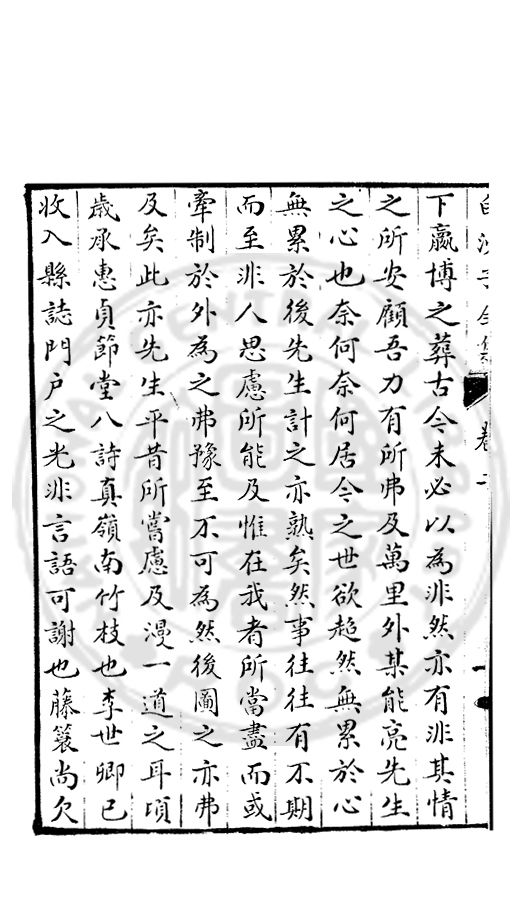 白沙子全集 卷
下嬴博之葬古今未必以為非然亦有非其情
之所安顧吾力有所弗及萬里外某能亮先生
之心也奈何奈何居今之世欲超然無累於心
無累於後先生計之亦熟矣然事往往有不期
而至非人思慮所能及惟在我者所當盡而或
牽制於外為之弗豫至不可為然後圖之亦弗
及矣此亦先生平昔所嘗慮及漫一道之耳頃
歲承惠貞節堂八詩真嶺南竹枝也李世卿已
收入縣誌門戶之光非言語可謝也藤簑尚欠